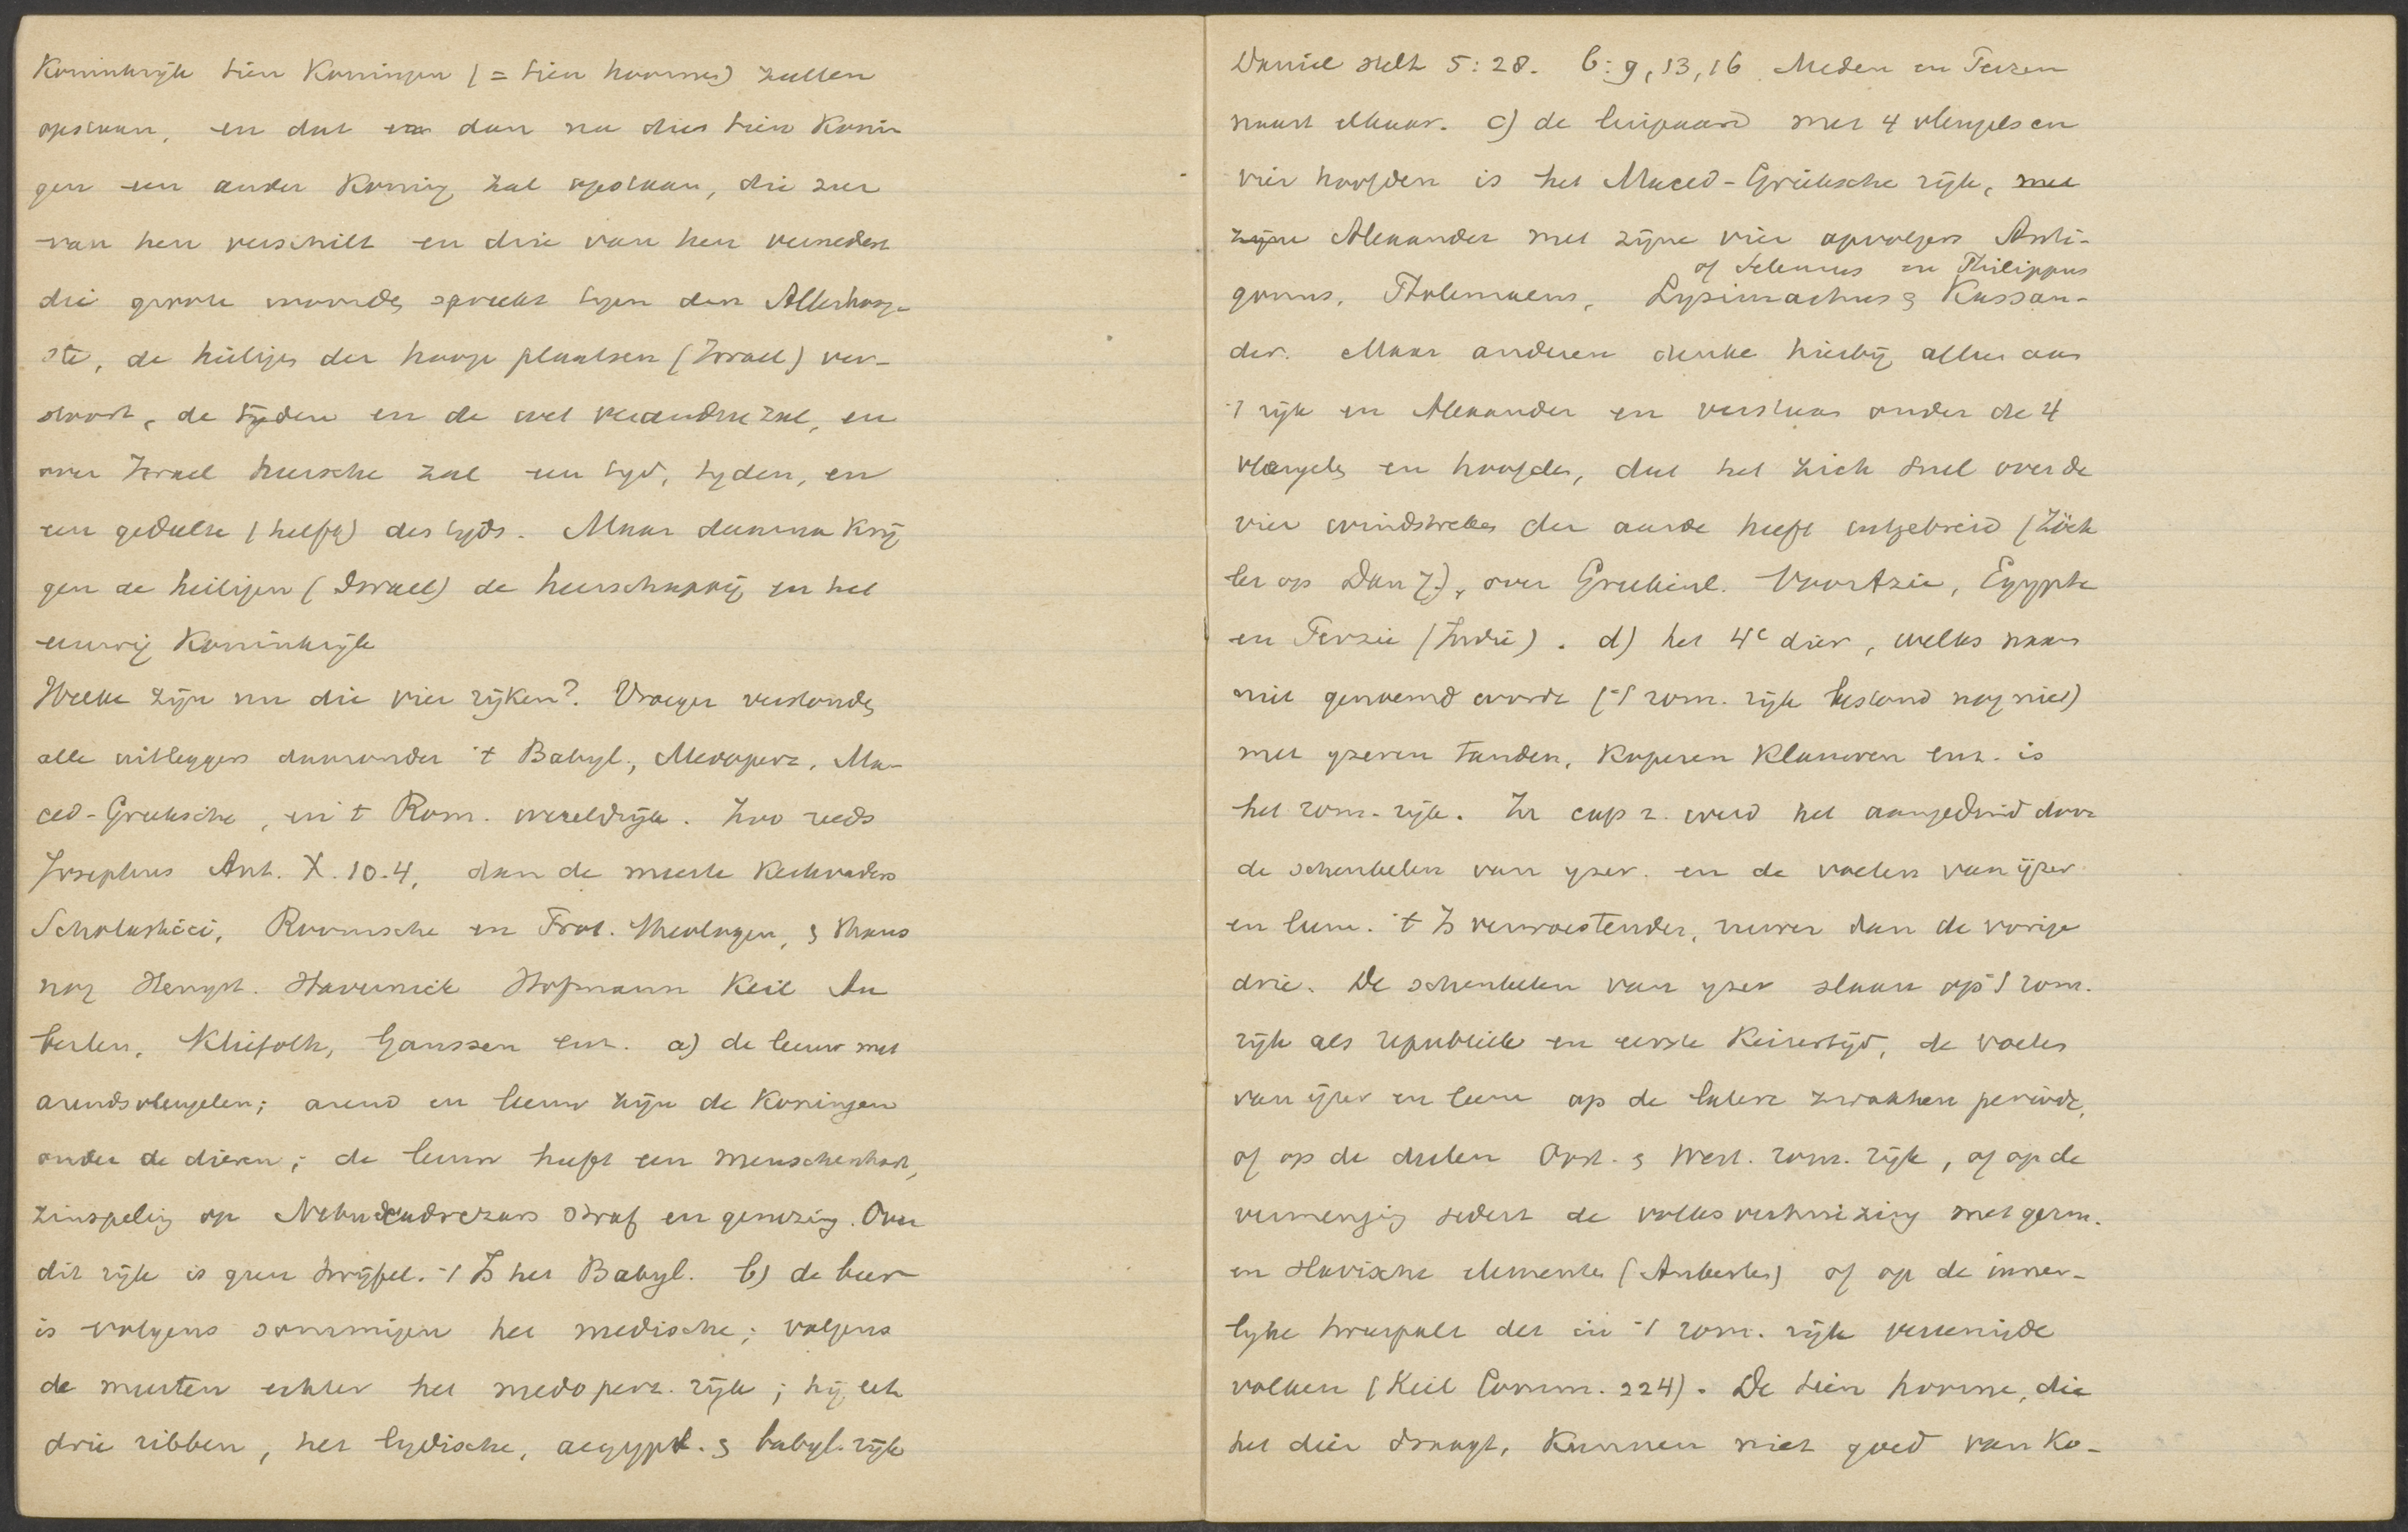 Koninkrijk tien Koningen (= tien hoornen) zullen
opstaan, en dat dan na dies tien Konin
gen een ander Koning zal opstaan, die zeer
van hen verschilt en drie van hen vernedert
die groote woorden spreekt tegen den Allerhoog-
ste, de heiligen der hooge plaatsen (Israel) ver-
stoort, de tijden en de wet veranderen zal, en
over Israel heersche zal een tijd, tyden, en
een gedeelte (helft) des tyds. Maar daarna krij
gen de heiligen (Israel) de heerschappij en het
eeuwig Koninkrijk
Welke zijn nu die vier rijken? Vroeger verstonden
alle uitleggers daaronder 't Babyl., Medopers., Ma-
ced-Grieksche, en 't Rom. wereldrijk. Zoo reeds
Josephus Ant. X. 10.4, dan de meeste Kerkvaders
Scholastici, Roomsche en Prot. theologen, & thans
nog Hengst. Havernick Hofmann Keil Au
berlen, Kliefoth, Gaussen enz. a) de leeuw met
arendsvleugelen; arend en leeuw zijn de Koningen
onder de dieren; de leeuw heeft een menschenhart,
zinspeling op Nebucadrezars straf en genezing. Over
dit rijk is geen twijfel. 't Is het Babyl. b) de beer
is volgens sommigen het medische; volgens
de meesten echter het medopers. rijk; hij eet
drie ribben, het lydische, aegypt. & babyl. rijk
Daniel stelt 5:28. 6:9,13,16 Meden en Perzen
naast elkaar. c) de luipaard met 4 vleugels en
vier hoofden is het Maced-Grieksche rijk, met
zijne Alexander met zijne vier opvolgers Anti-
of Seleucus en Philippus
gonus, Ptolemaeus, Lysimachus & Kassan-
der. Maar anderen denke hierbij alleen aan
't rijk en Alexander en verstaan onder de 4
vleugels en hoofden, dat het zich snel over de
vier windstreken der aarde heeft uitgebreid (Zöck
ler op Dan 7), over Griekenl. Voor Azie, Egypte
en Perzie (Indië). d) het 4e dier, welks naam
niet genoemd wordt ('t rom. rijk bestond nog niet)
met yzeren tanden, koperen klauwen enz. is
het rom. rijk. In cap 2. werd het aangeduid door
de schenkelen van yzer. en de voeten van ijzer
en leem. 't Is verwoestender, ruwer dan de vorige
drie. De schenkelen van yzer slaan op 't rom.
rijk als republiek en eerste Keizertijd, de voeten
van ijzer en leem op de latere zwakkere periode,
of op de deelen Oost. & West. rom. rijk, of op de
vermenging sedert de volksverhuizing met germ.
en slavische elementen (Auberlen) of op de inner-
lyke tweespalt der in 't rom. rijk vereenigde
volken (Keil Comm. 224). De tien hoorne, die
het dier draagt, kunnen niet goed van Ko-